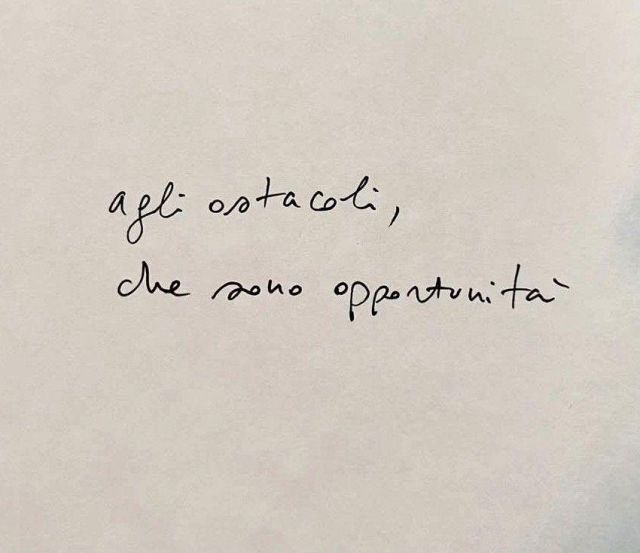 agli ostacoli,
che sono opportunità